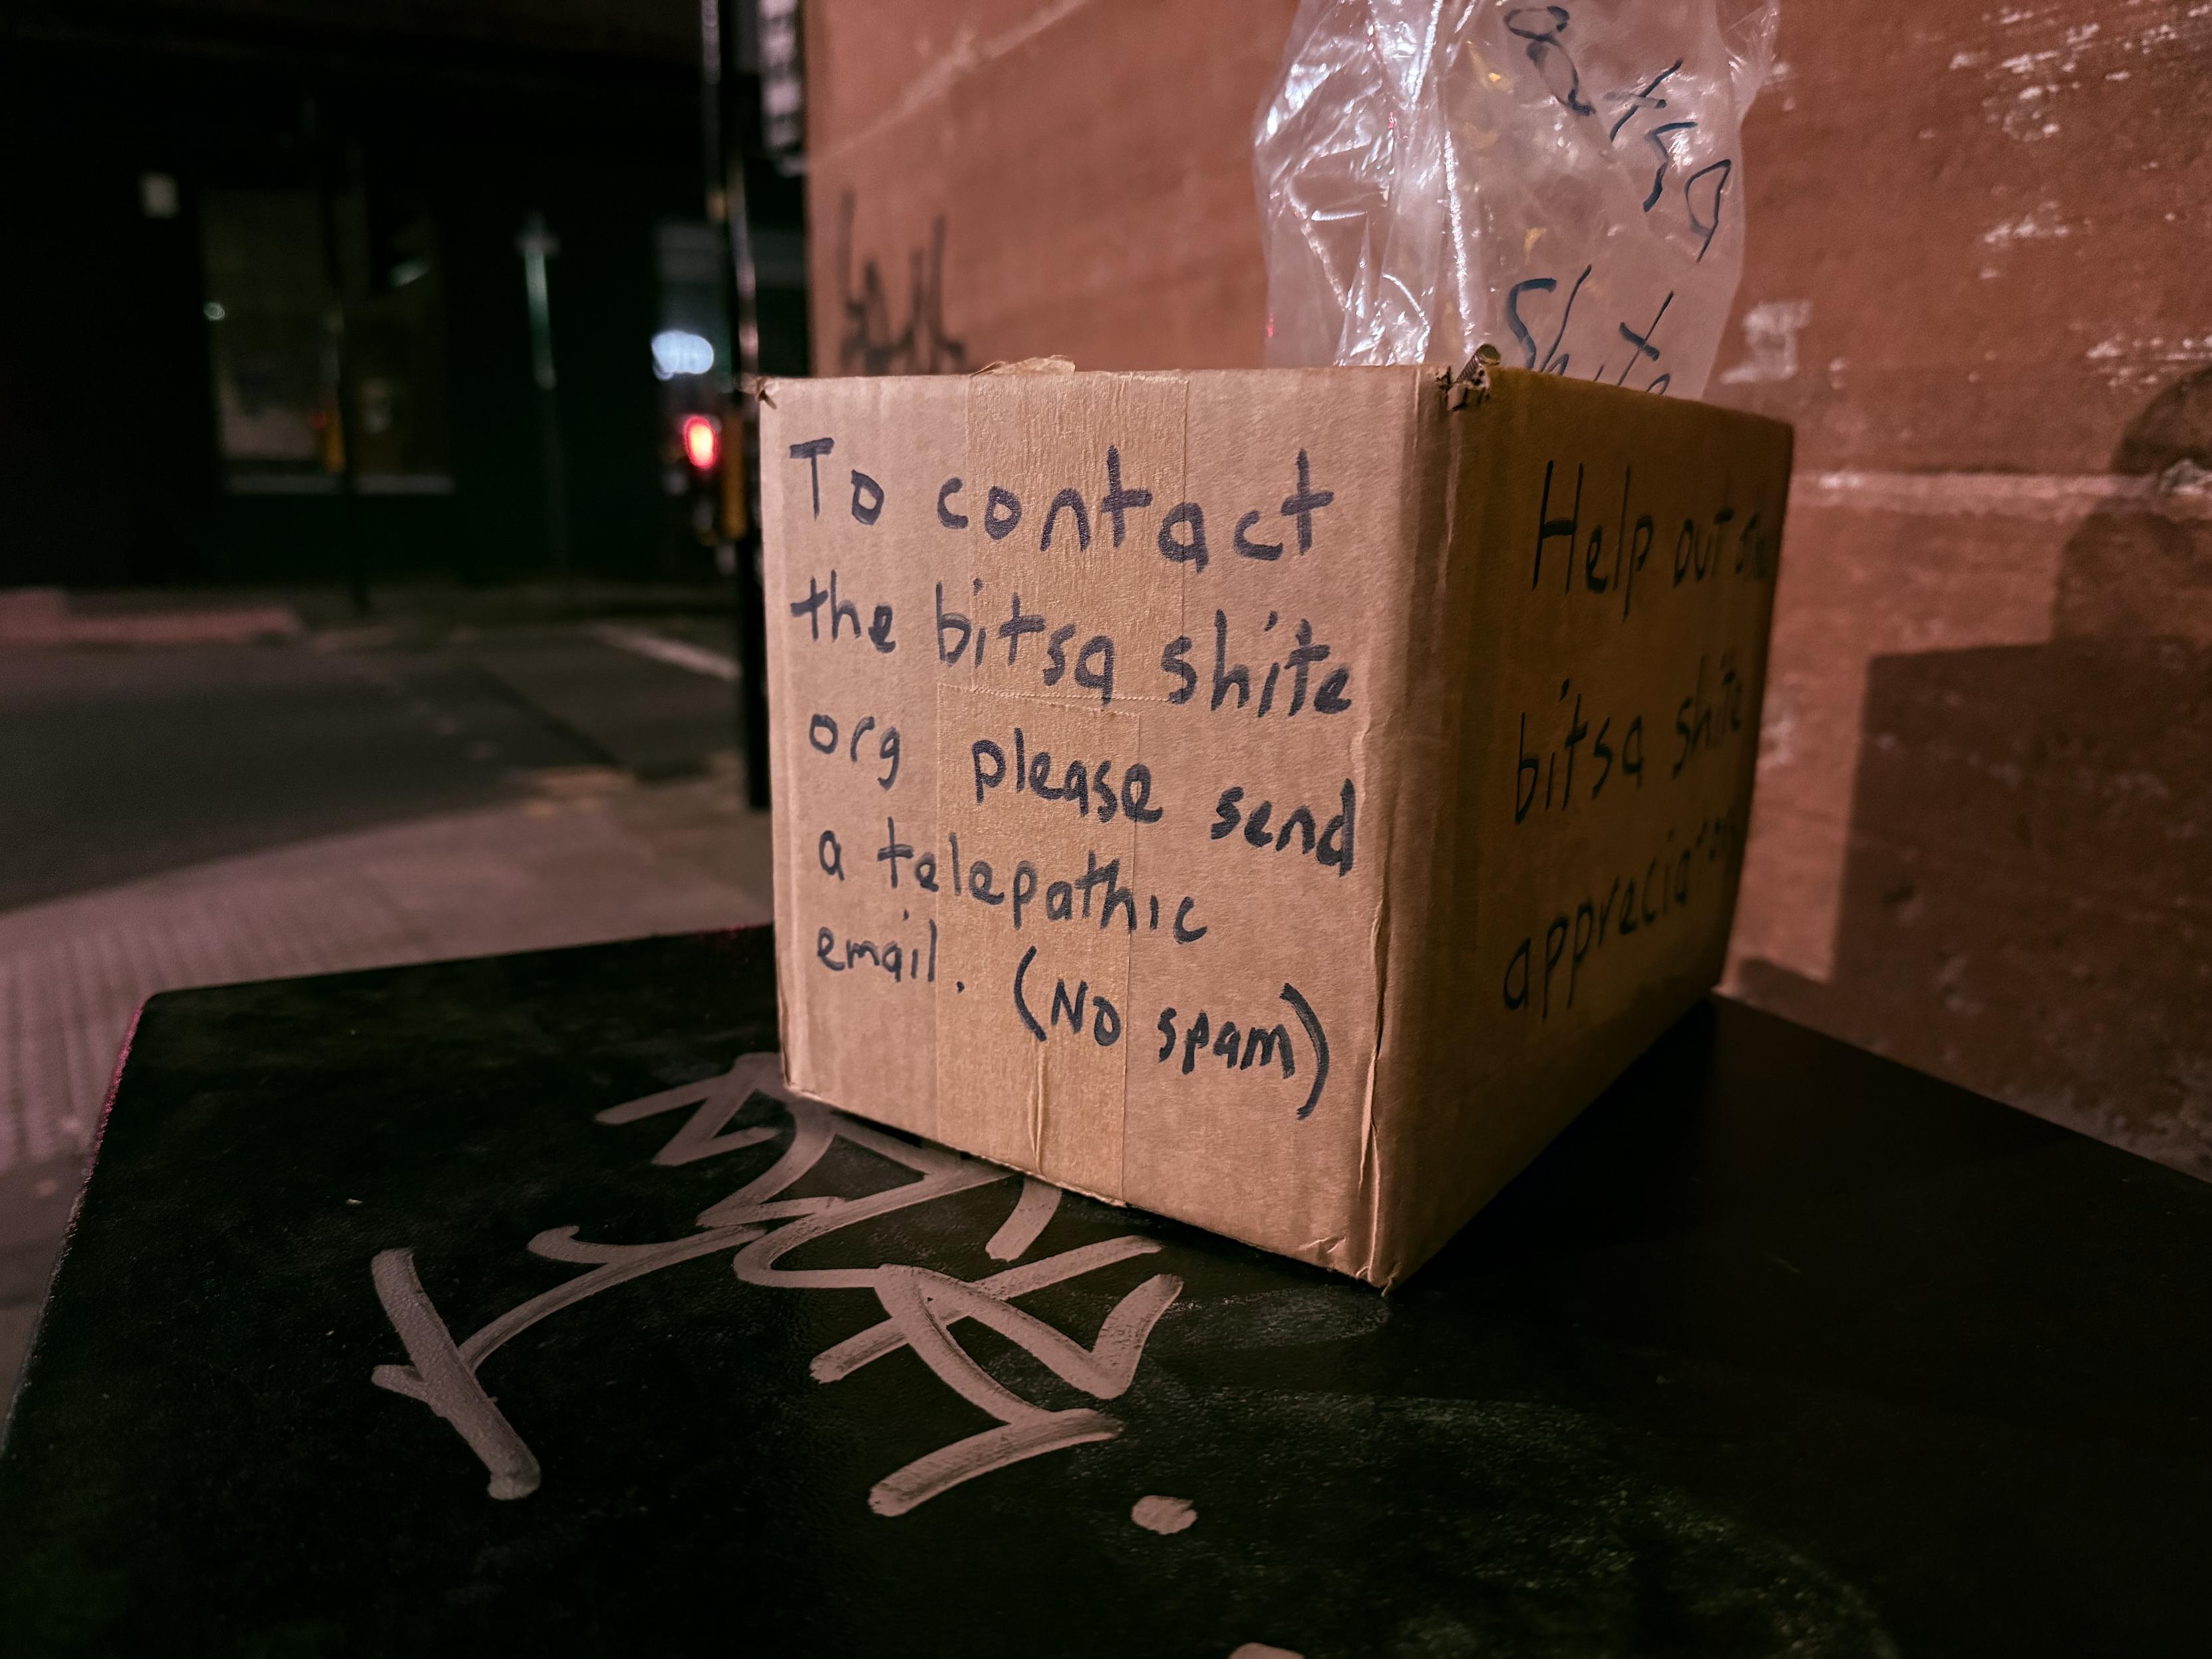 Bitsa
Shite
To contact
the bitsa shite
org please send
a telepathic
email. (No spam)
Help out
bitsa shite